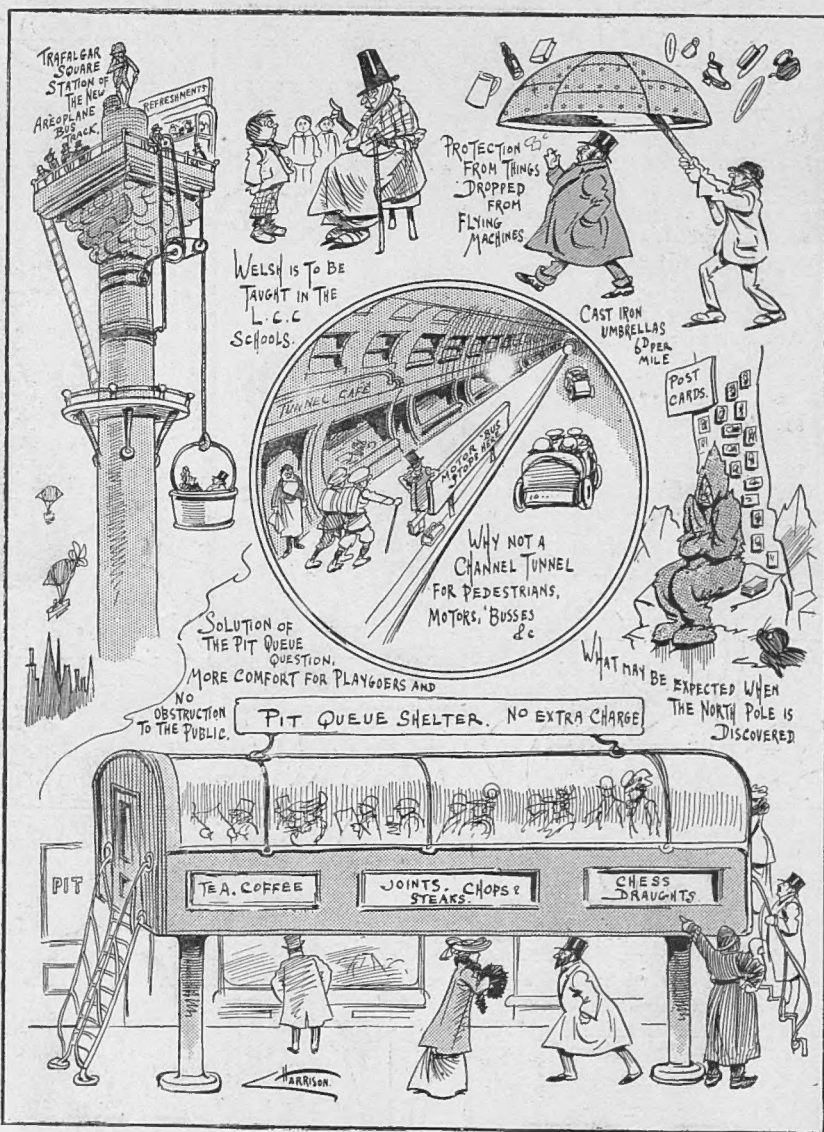 TRAFALGAR
SQUARE
STATION OF
THE NEW
AREOPLANE
BUS
TRACK.
REFRESHMENTS
WELSH IS TO BE
TAUGHT IN THE
L.C.C
SCHOOLS.
PROTECTION
FROM THINGS
DROPPED
FROM
FLYING
MACHINES
CAST IRON
UMBRELLAS
6D PER
MILE
TUNNEL CAFÉ
MOTOR 'BUS
STOPS HERE
WHY NOT A
CHANNEL TUNNEL
FOR PEDESTRIANS,
MOTORS, 'BUSSES
&c
POST
CARDS.
WHAT MAY BE EXPECTED WHEN
THE NORTH POLE IS
DISCOVERED
SOLUTION OF
THE PIT QUEUE
QUESTION.
MORE COMFORT FOR PLAYGOERS AND
NO
OBSTRUCTION
TO THE PUBLIC.
PIT QUEUE SHELTER. NO EXTRA CHARGE
PIT
TEA. COFFEE
JOINTS. CHOPS &
STEAKS.
CHESS
DRAUGHTS.
HARRISON.